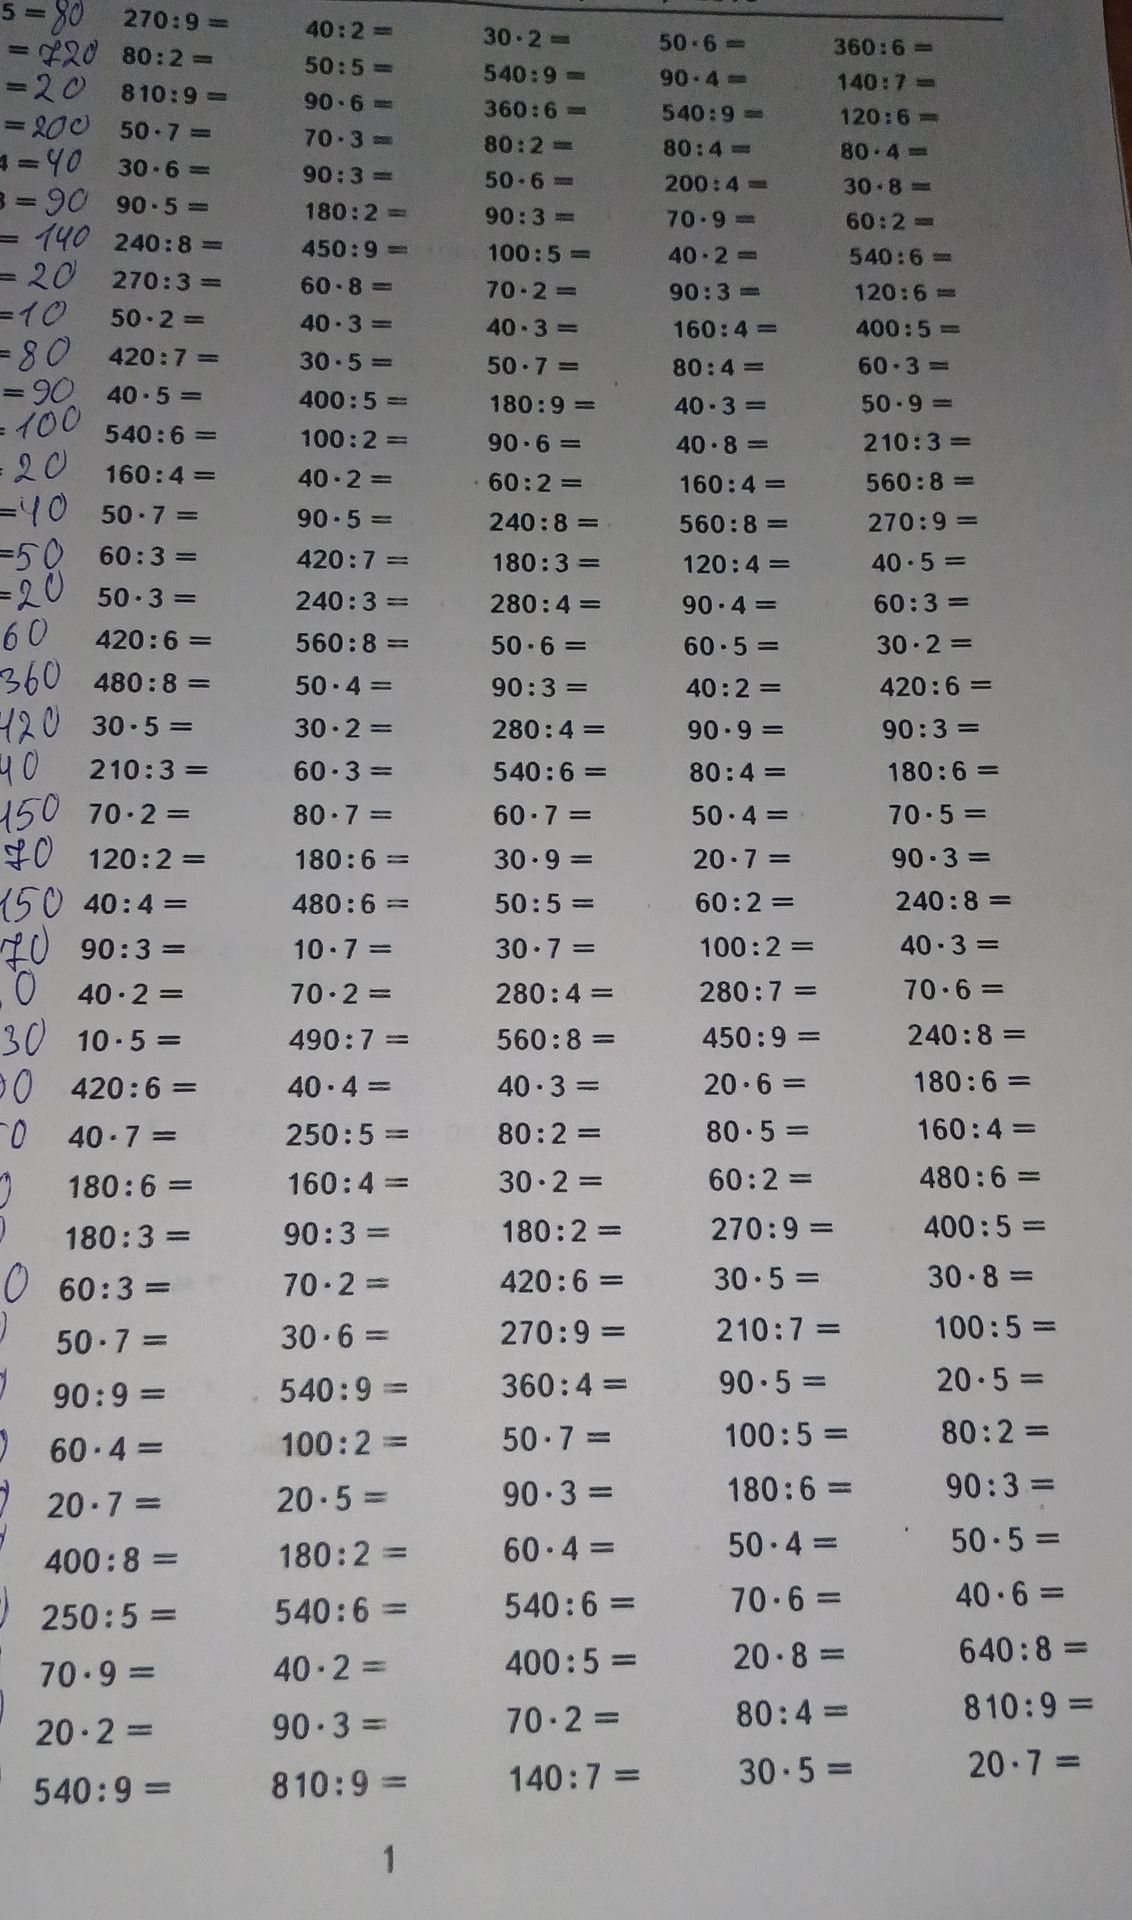 5 = 80 270:9 = 40:2 = 30·2 = 50·6 = 360:6 =
= 720 80:2 = 50:5 = 540:9 = 90·4 = 140:7 =
= 20 810:9 = 90·6 = 360:6 = 540:9 = 120:6 =
= 200 50·7 = 70·3 = 80:2 = 80:4 = 80·4 =
4 = 40 30·6 = 90:3 = 50·6 = 200:4 = 30·8 =
= 90 90·5 = 180:2 = 90:3 = 70·9 = 60:2 =
= 140 240:8 = 450:9 = 100:5 = 40·2 = 540:6 =
= 20 270:3 = 60·8 = 70·2 = 90:3 = 120:6 =
= 10 50·2 = 40·3 = 40·3 = 160:4 = 400:5 =
= 80 420:7 = 30·5 = 50·7 = 80:4 = 60·3 =
= 90 40·5 = 400:5 = 180:9 = 40·3 = 50·9 =
= 100 540:6 = 100:2 = 90·6 = 40·8 = 210:3 =
20 160:4 = 40·2 = 60:2 = 160:4 = 560:8 =
= 40 50·7 = 90·5 = 240:8 = 560:8 = 270:9 =
= 50 60:3 = 420:7 = 180:3 = 120:4 = 40·5 =
= 20 50·3 = 240:3 = 280:4 = 90·4 = 60:3 =
60 420:6 = 560:8 = 50·6 = 60·5 = 30·2 =
360 480:8 = 50·4 = 90:3 = 40:2 = 420:6 =
420 30·5 = 30·2 = 280:4 = 90·9 = 90:3 =
40 210:3 = 60·3 = 540:6 = 80:4 = 180:6 =
150 70·2 = 80·7 = 60·7 = 50·4 = 70·5 =
70 120:2 = 180:6 = 30·9 = 20·7 = 90·3 =
150 40:4 = 480:6 = 50:5 = 60:2 = 240:8 =
70 90:3 = 10·7 = 30·7 = 100:2 = 40·3 =
0 40·2 = 70·2 = 280:4 = 280:7 = 70·6 =
30 10·5 = 490:7 = 560:8 = 450:9 = 240:8 =
0 420:6 = 40·4 = 40·3 = 20·6 = 180:6 =
0 40·7 = 250:5 = 80:2 = 80·5 = 160:4 =
180:6 = 160:4 = 30·2 = 60:2 = 480:6 =
180:3 = 90:3 = 180:2 = 270:9 = 400:5 =
0 60:3 = 70·2 = 420:6 = 30·5 = 30·8 =
50·7 = 30·6 = 270:9 = 210:7 = 100:5 =
90:9 = 540:9 = 360:4 = 90·5 = 20·5 =
60·4 = 100:2 = 50·7 = 100:5 = 80:2 =
20·7 = 20·5 = 90·3 = 180:6 = 90:3 =
400:8 = 180:2 = 60·4 = 50·4 = 50·5 =
250:5 = 540:6 = 540:6 = 70·6 = 40·6 =
70·9 = 40·2 = 400:5 = 20·8 = 640:8 =
20·2 = 90·3 = 70·2 = 80:4 = 810:9 =
540:9 = 810:9 = 140:7 = 30·5 = 20·7 =
1